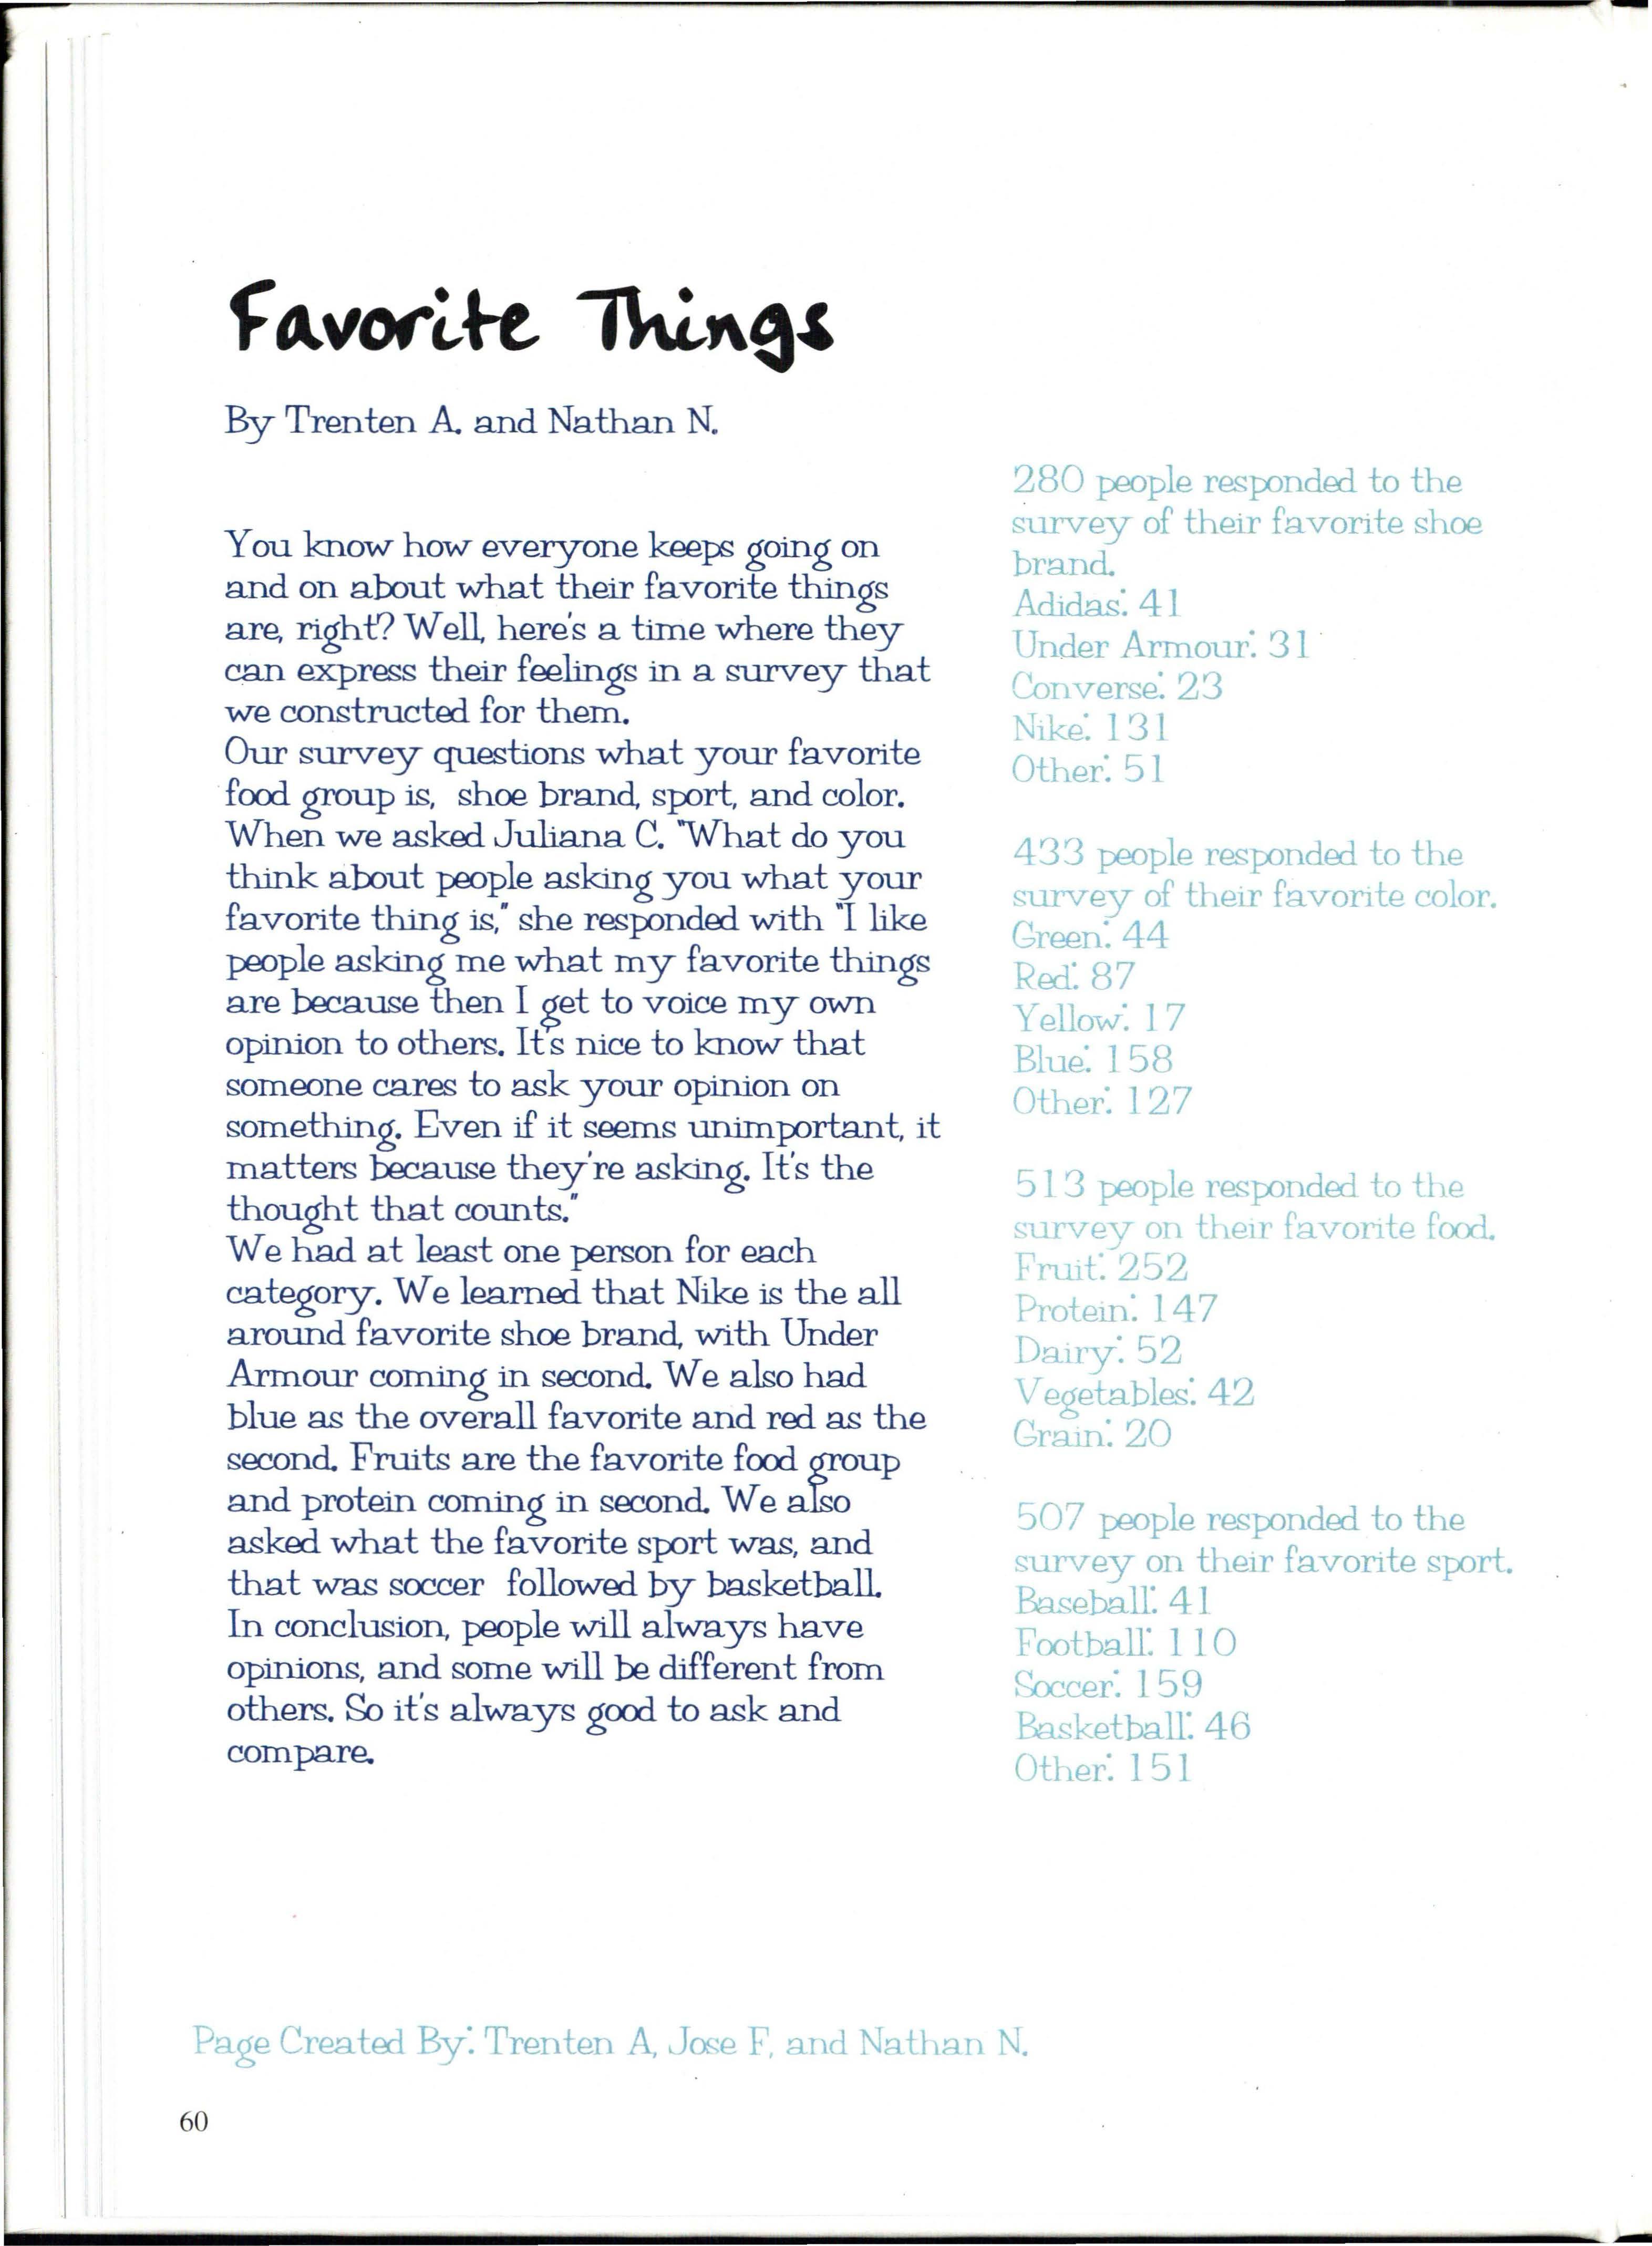 Favorite Things
By Trenten A. and Nathan N.
You know how everyone keeps going on
and on about what their favorite things
are, right? Well, here's a time where they
can express their feelings in a survey that
we constructed for them.
Our survey questions what your favorite
food group is,  shoe brand, sport, and color.
When we asked Juliana C. "What do you
think about people asking you what your
favorite thing is," she responded with "I like
people asking me what my favorite things
are because then I get to voice my own
opinion to others. It's nice to know that
someone cares to ask your opinion on
something. Even if it seems unimportant, it
matters because they're asking. It's the
thought that counts."
We had at least one person for each
category. We learned that Nike is the all
around favorite shoe brand, with Under
Armour coming in second. We also had
blue as the overall favorite and red as the
second. Fruits are the favorite food group
and protein coming in second. We also
asked what the favorite sport was, and
that was soccer  followed by basketball.
In conclusion, people will always have
opinions, and some will be different from
others. So it's always good to ask and
compare.
280 people responded to the
survey of their favorite shoe
brand.
Adidas: 41
Under Armour: 31
Converse: 23
Nike: 131
Other: 51
433 people responded to the
survey of their favorite color.
Green: 44
Red: 87
Yellow: 17
Blue: 158
Other: 127
513 people responded to the
survey on their favorite food.
Fruit: 252
Protein: 147
Dairy: 52
Vegetables: 42
Grain: 20
507 people responded to the
survey on their favorite sport.
Baseball: 41
Football: 110
Soccer: 159
Basketball: 46
Other: 151
Page Created By: Trenten A, Jose F, and Nathan N.
60